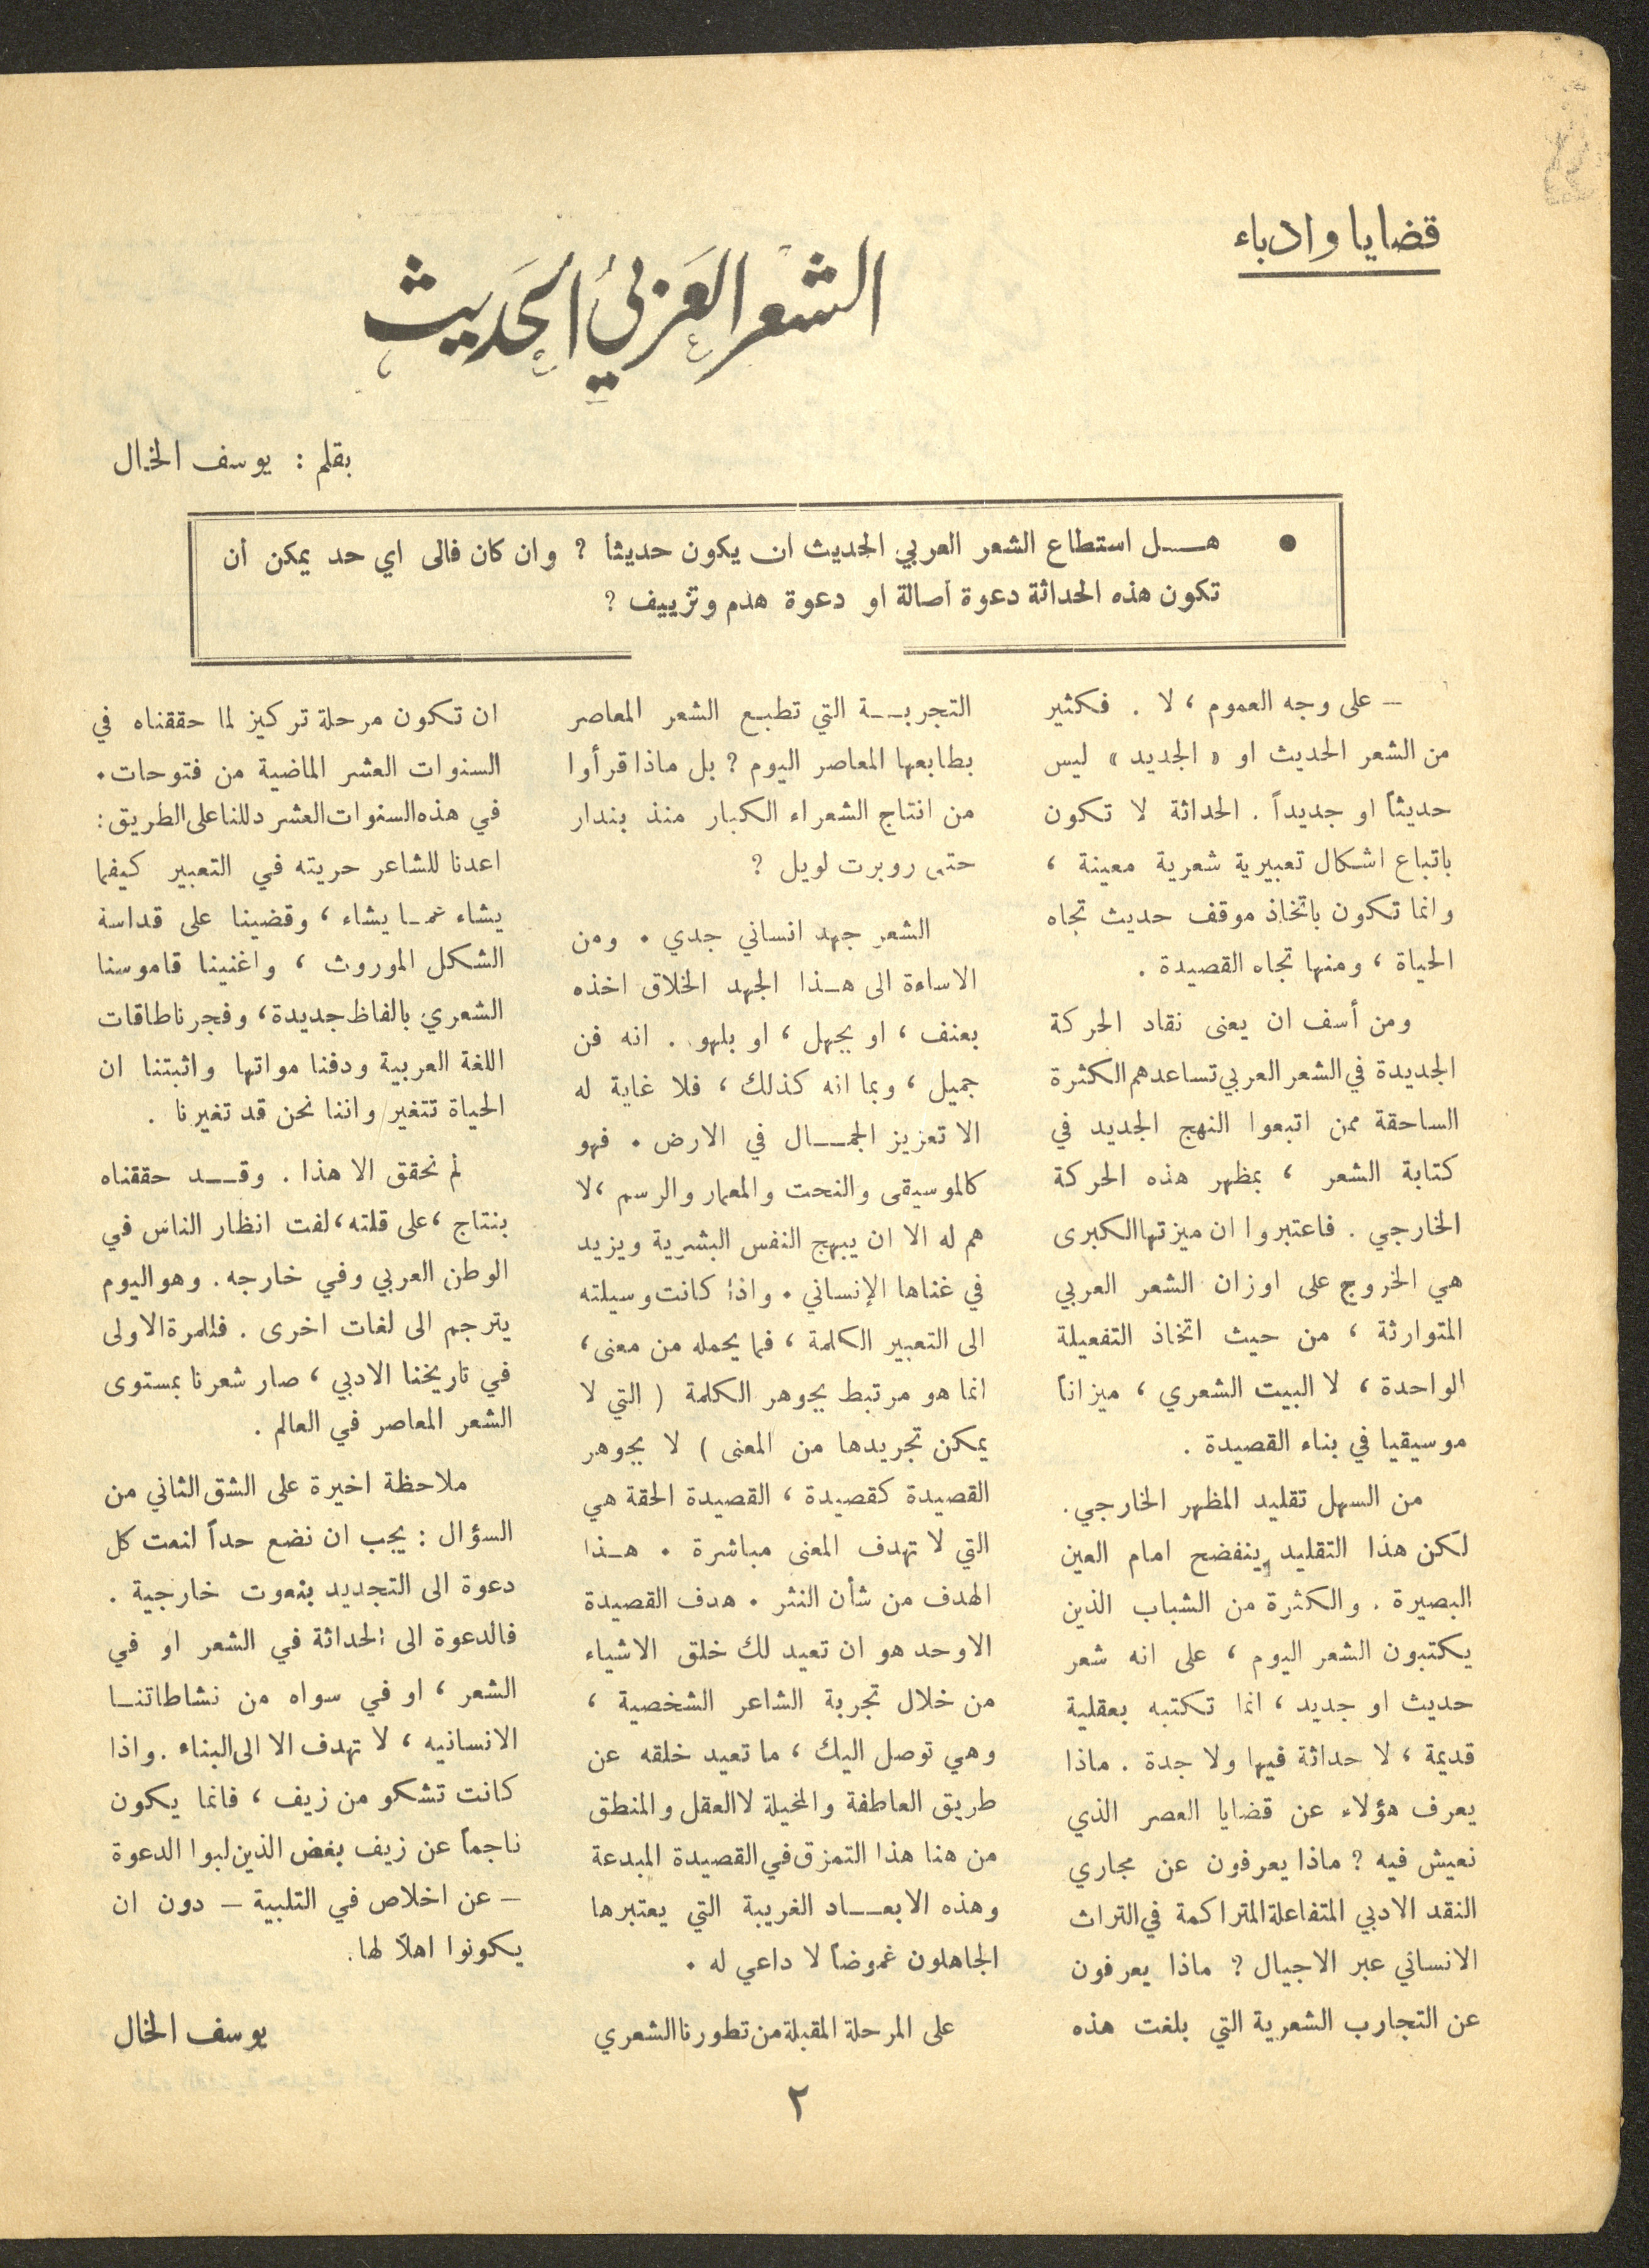 قضايا وادباء
الشعر العربي الحديث
بقلم : يوسف الخال
● هـــل استطاع الشعر العربي الحديث ان يكون حديثاً ? وان كان فالى اي حد يمكن ان
تكون هذه الحداثة دعوة أصالة او دعوة هدم وتزييف ?
– على وجه العموم ، لا . فكثير
من الشعر الحديث او « الجديد » ليس
حديثاً او جديداً . الحداثة لا تكون
باتباع اشكال تعبيرية شعرية معينة ،
وانما تكون باتخاذ موقف حديث تجاه
الحياة ، ومنها تجاه القصيدة .
ومن أسف ان يعنى نقاد الحركة
الجديدة في الشعر العربي تساعدهم الكثرة
الساحقة ممن اتبعوا النهج الجديد في
كتابة الشعر ، بمظهر هذه الحركة
الخارجي . فاعتبروا ان ميزتها الكبرى
هي الخروج على اوزان الشعر العربي
المتوارثة ، من حيث اتخاذ التفعيلة
الواحدة ، لا البيت الشعري ، ميزاناً
موسيقيا في بناء القصيدة .
من السهل تقليد المظهر الخارجي .
لكن هذا التقليد ينفضح امام العين
البصيرة . والكثرة من الشباب الذين
يكتبون الشعر اليوم ، على انه شعر
حديث او جديد ، انما تكتبه بعقلية
قديمة ، لا حداثة فيها ولا جدة . ماذا
يعرف هؤلاء عن قضايا العصر الذي
نعيش فيه ? ماذا يعرفون عن مجاري
النقد الادبي المتفاعلة المتراكمة في التراث
الانساني عبر الاجيال ? ماذا يعرفون
عن التجارب الشعرية التي بلغت هذه
التجربـــة التي تطبع الشعر المعاصر
بطابعها المعاصر اليوم ? بل ماذا قرأوا
من انتاج الشعراء الكبار منذ بندار
حتى روبرت لويل ?
الشعر جهد انساني جدي . ومن
الاساءة الى هـذا الجهد الخلاق اخذه
بعنف ، او بجهل ، او بلهو . انه فن
جميل ، وبما انه كذلك ، فلا غاية له
الا تعزيز الجمـــال في الارض . فهو
كالموسيقى والنحت والمعمار والرسم ، لا
هم له الا ان يبهج النفس البشرية ويزيد
في غناها الإنساني . واذا كانت وسيلته
الى التعبير الكلمة ، فما يحمله من معنى ،
انما هو مرتبط بجوهر الكلمة ( التي لا
يمكن تجريدها من المعنى ) لا بجوهر
القصيدة كقصيدة ، القصيدة الحقة هي
التي لا تهدف المعنى مباشرة . هـذا
الهدف من شأن النثر . هدف القصيدة
الاوحد هو ان تعيد لك خلق الاشياء
من خلال تجربة الشاعر الشخصية ،
وهي توصل اليك ، ما تعيد خلقه عن
طريق العاطفة والمخيلة لا العقل والمنطق
من هنا هذا التمزق في القصيدة المبدعة
وهذه الابعـــاد الغريبة التي يعتبرها
الجاهلون غموضاً لا داعي له .
على المرحلة المقبلة من تطورنا الشعري
ان تكون مرحلة تركيز لما حققناه في
السنوات العشر الماضية من فتوحات .
في هذه السنوات العشر دللنا على الطريق :
اعدنا للشاعر حريته في التعبير كيفما
يشاء عمـا يشاء ، وقضينا على قداسة
الشكل الموروث ، واغنينا قاموسنا
الشعري بالفاظ جديدة ، وفجرنا طاقات
اللغة العربية ودفنا مواتها واثبتنا ان
الحياة تتغير واننا نحن قد تغيرنا .
لم نحقق الا هذا . وقـــد حققناه
بنتاج ، على قلته ، لفت انظار الناس في
الوطن العربي وفي خارجه . وهو اليوم
يترجم الى لغات اخرى . فللمرة الاولى
في تاريخنا الادبي ، صار شعرنا بمستوى
الشعر المعاصر في العالم .
ملاحظة اخيرة على الشق الثاني من
السؤال : يجب ان نضع حداً لنعت كل
دعوة الى التجديد بنعوت خارجية .
فالدعوة الى الحداثة في الشعر او في
الشعر ، او في سواه من نشاطاتنـا
الانسانيه ، لا تهدف الا الى البناء . واذا
كانت تشكو من زيف ، فانما يكون
ناجماً عن زيف بغض الذين لبوا الدعوة
– عن اخلاص في التلبية – دون ان
يكونوا اهلاً لها .
يوسف الخال
٢